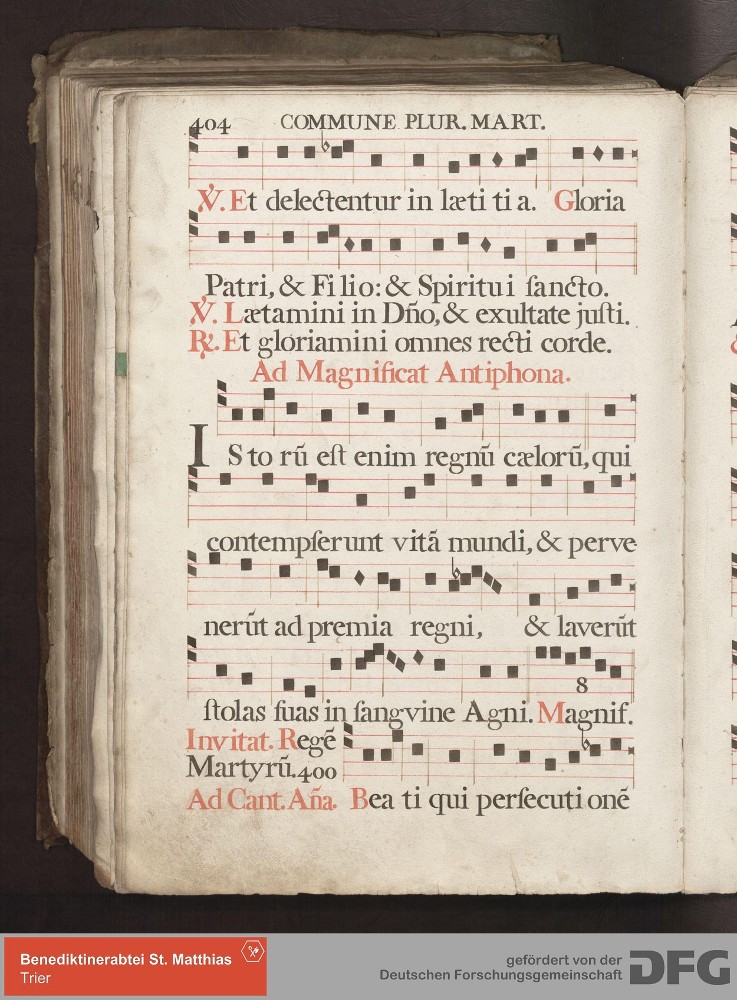 404 COMMUNE PLUR. MART.
℣. Et delectentur in læti ti a. Gloria
Patri, & Fi lio: & Spiritu i ſancto.
℣. Lætamini in Dño, & exultate juſti.
℟. Et gloriamini omnes recti corde.
Ad Magnificat Antiphona.
IS to rū eſt enim regnū cælorū, qui
contempſerunt vitā mundi, & perve
nerūt ad premia regni, & laverūt
8
ſtolas ſuas in ſangvine Agni. Magnif.
Invitat. Regē
Martyrū. 400
Ad Cant. Aña. Bea ti qui perſecuti onē
Benediktinerabtei St. Matthias
Trier
gefördert von der
Deutschen Forschungsgemeinschaft DFG